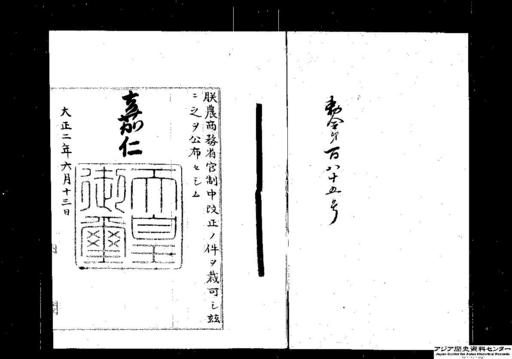 勅令第百八十五号
朕農商務省官制中改正ノ件ヲ裁可シ茲
ニ之ヲ公布セシム
嘉仁
天皇
御璽
大正二年六月十三日
アジア歴史資料センター
Japan Center for Asian Historical Records